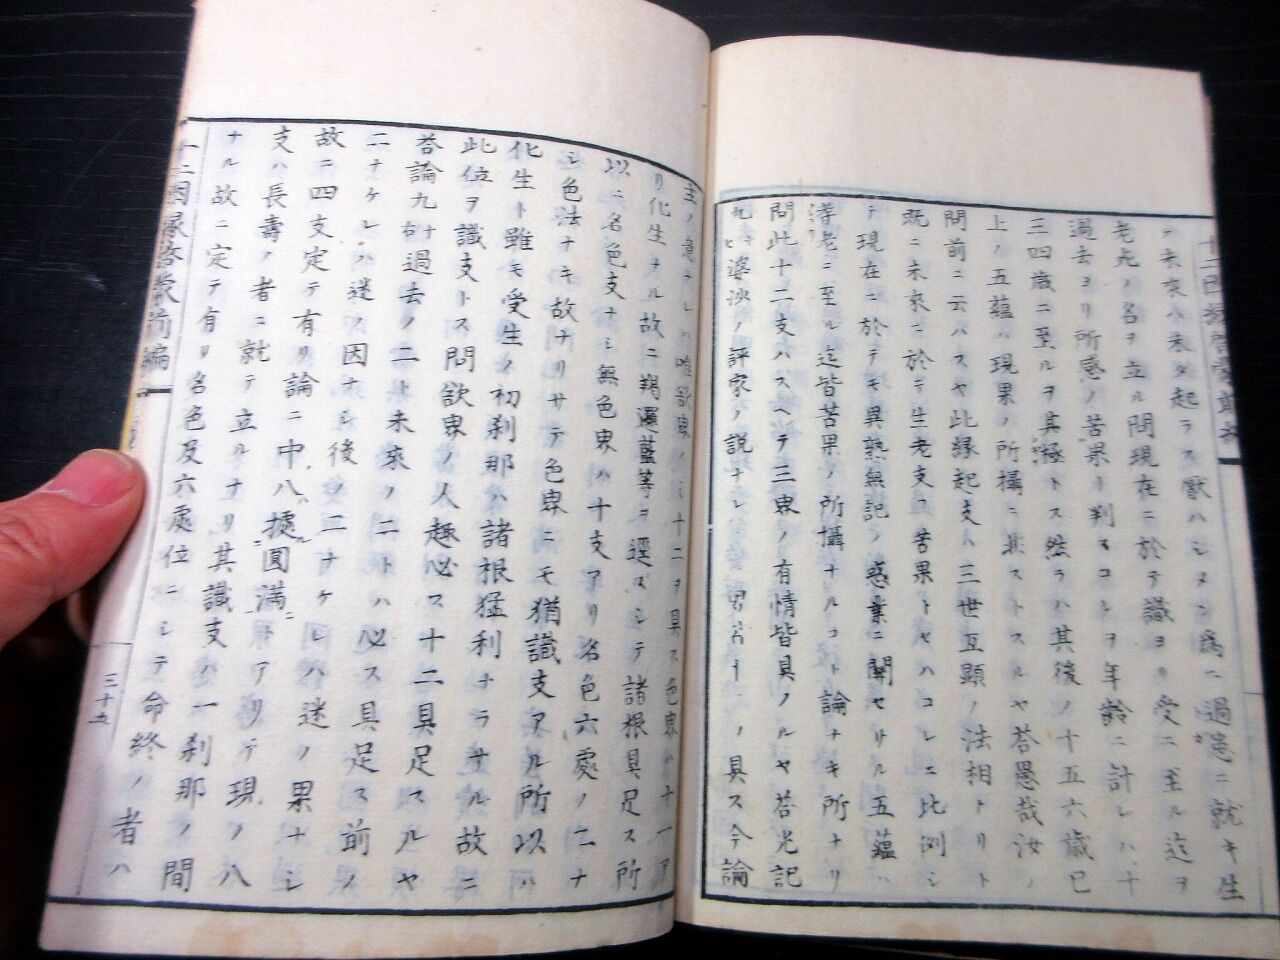 ハ未來ハ未タ起ラス厭ハシメン為ニ過患ニ就キ生
老死ノ名ヲ立ル問現在ニ於テ識ヨリ受ニ至ル迄ヲ
過去ヨリ所感ノ苦果ト判スコレヲ年齢ニ計レハ十
三四歳ニ至ルヲ其極トス然ラハ其後ノ十五六歳已
上ノ五蘊ハ現果ノ所攝ニ非ストスルヤ答愚哉汝ノ
問前ニ云ハスヤ此縁起支ハ三世互顯ノ法相トリト
既ニ未來ニ於テ生老支ヲ苦果トセハコレニ比例シ
テ現在ニ於テモ異熟無記ノ惑業ニ關セサル五蘊ハ
老ニ至ル迄皆苦果ノ所攝ナルコト論ナキ所ナリ
問此十二支ハスヘテ三界ノ有情皆具ノルヤ答光記
九ナヒ婆沙ノ評家ノ説ナレ ノ具ス今論
主ノ意ナレハ唯欲界ノミ十二ヲ具ス色界ハ十一ア
リ化生ナル故ニ羯邏藍等ヲ逕ズシテ諸根具足ス所
以ニ名色支ナシ無色界ハ十支アリ名色六處ノ二ナ
シ色法ナキ故ナリサテ色界ニモ猶識支アル所以ハ
化生ト雖モ受生ノ初刹那ハ諸根猛利ナラサル故ニ
此位ヲ識支トス問欲界ノ人趣必ス十二具足スルヤ
答論九ナ右過去ノ二ト未來ノ二トハ必ス具足ス前ノ
二ナケレハ迷ス因ナシ後ノ二ナケレハ迷ノ果ナシ
故ニ四支定テ有リ論ニ中八據圓滿トアリテ現ノ八
支ハ長壽ノ者ニ就テ立ルナリ其識支ハ一刹那ノ間
ナル故ニ定テ有リ名色及六處位ニシテ命終ノ者ハ
十二因縁啓蒙前編
三十五